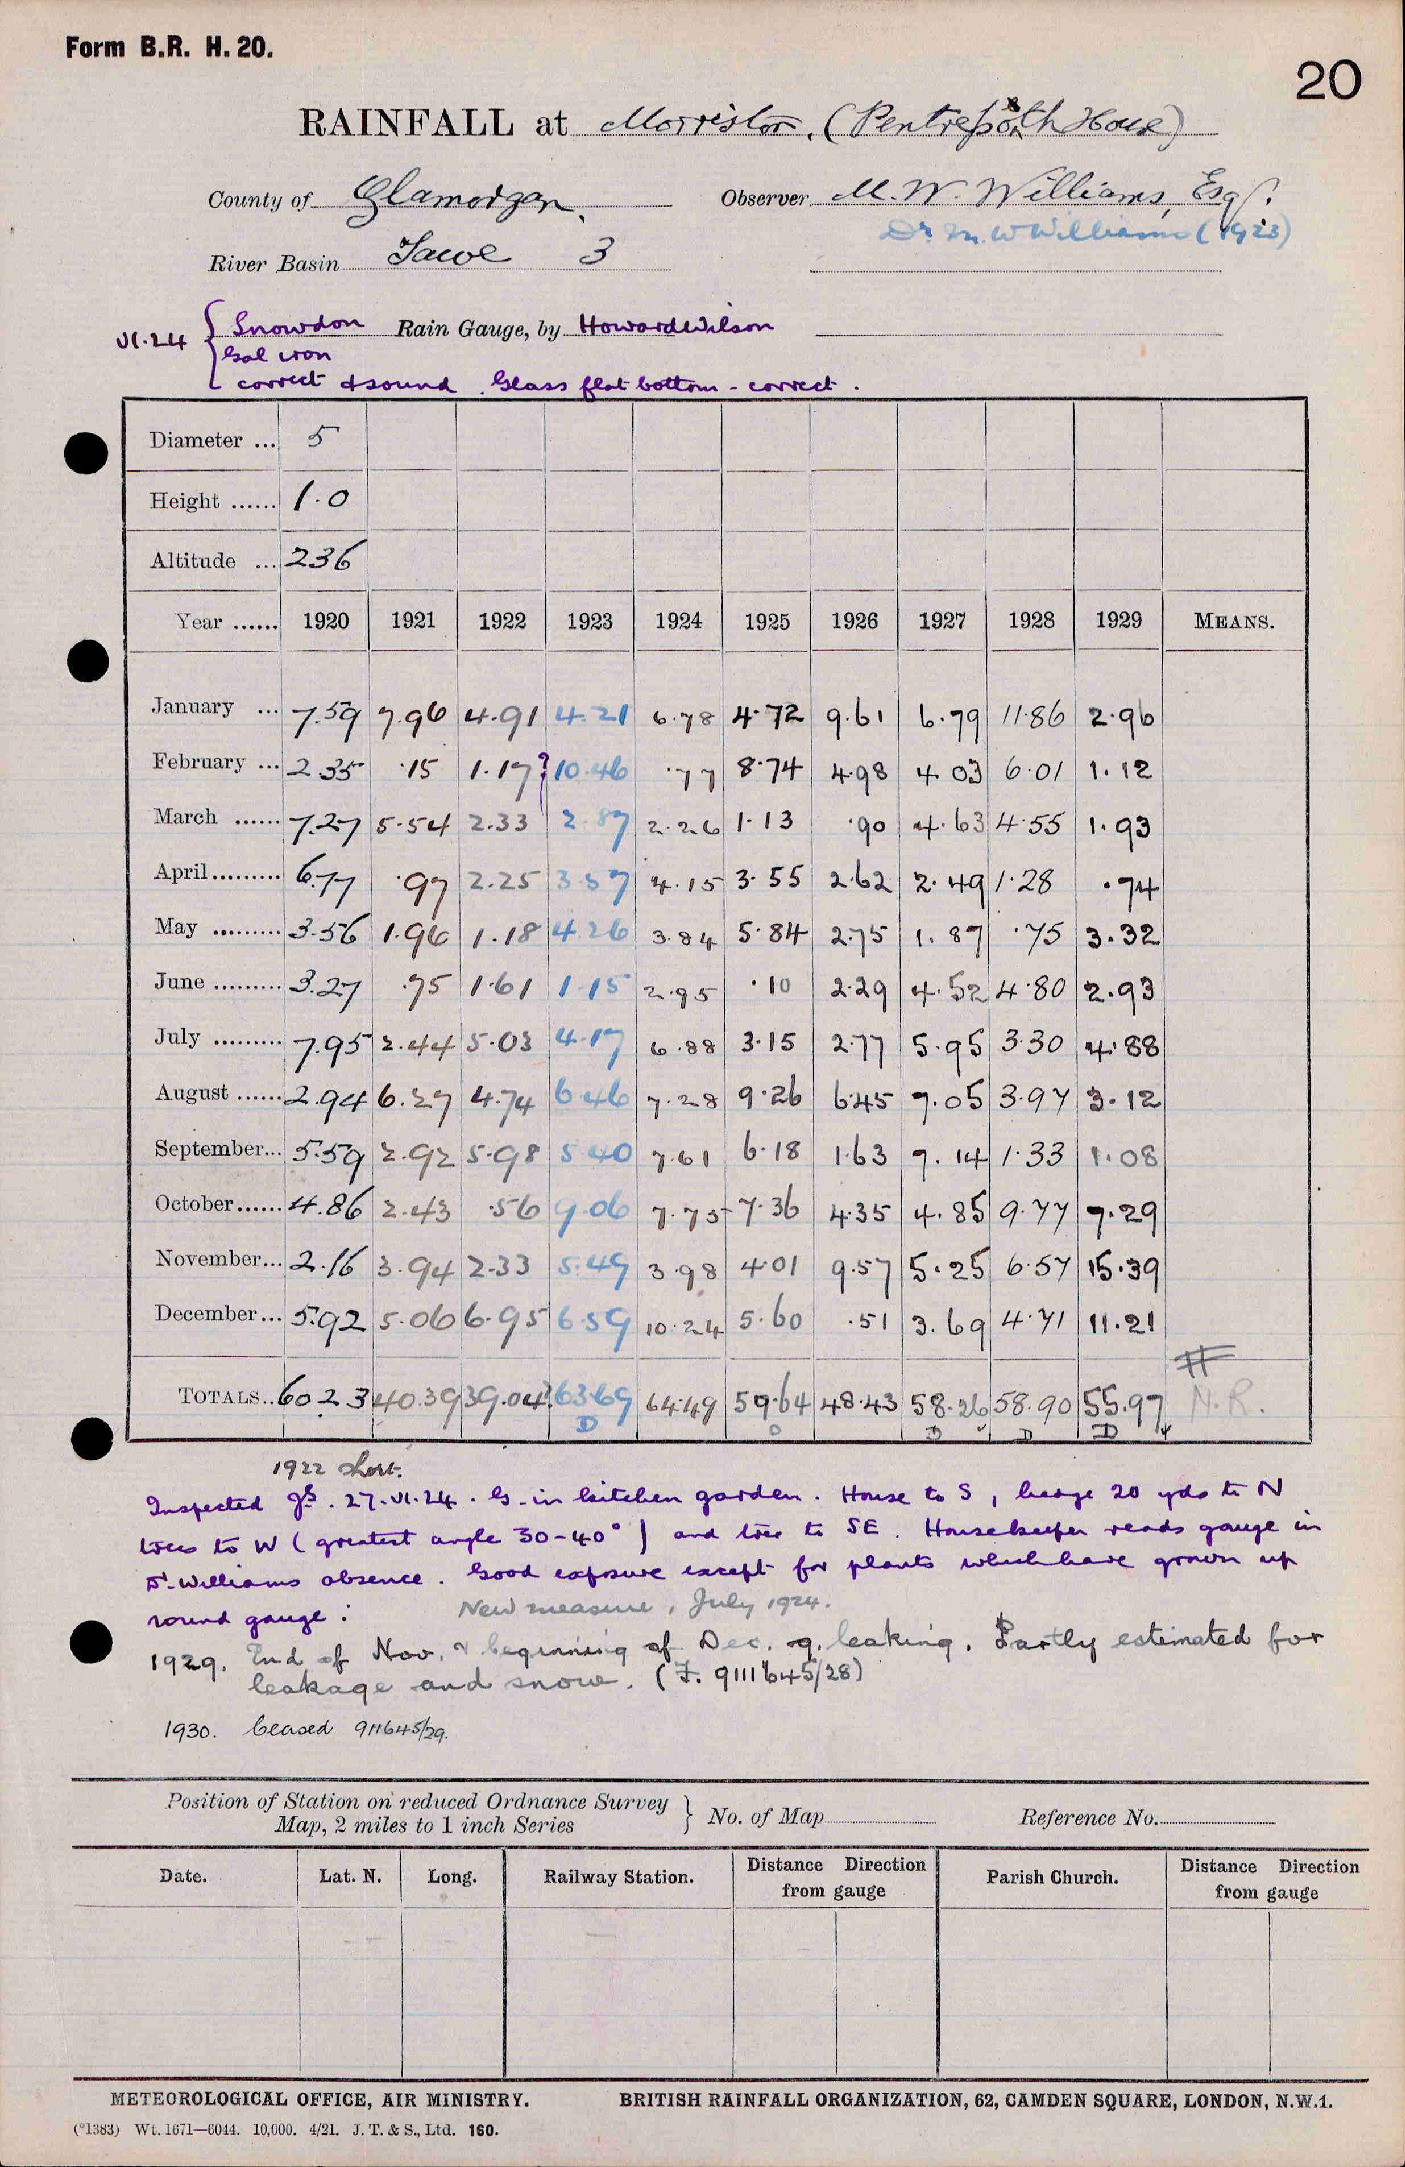 Form B.R. H. 20.
20
RAINFALL at Morriston, (Pentrepoth House)
County of Glamorgan. Observer M. W. Williams, Esq.
Dr. M. W Williams (1923)
River Basin Tawe 3
VI.24 Snowdon Rain Gauge, by Howard Wilson
Gal iron
correct & sound. Glass flat bottom - correct.
Diameter ... 5
Height ...... 1.0
Altitude ... 236
Year ...... 1920 1921 1922 1923 1924 1925 1926 1927 1928 1929 MEANS.
January ... 7.59 7.96 4.91 4.21 6.78 4.72 9.61 6.79 11.86 2.96
February ... 2.35 .15 1.17? 10.46 .77 8.74 4.98 4.03 6.01 1.12
March ...... 7.27 5.54 2.33 2.87 2.26 1.13 .90 4.63 4.55 1.93
April ......... 6.77 .97 2.25 3.57 4.15 3.55 2.62 2.49 1.28 .74
May ......... 3.56 1.96 1.18 4.26 3.84 5.84 2.75 1.87 .75 3.32
June ......... 3.27 .75 1.61 1.15 2.95 .10 2.29 4.52 4.80 2.93
July ......... 7.95 2.44 5.03 4.17 6.88 3.15 2.77 5.95 3.30 4.88
August ...... 2.94 6.27 4.74 6.46 7.28 9.26 6.45 7.05 3.97 3.12
September... 5.59 2.92 5.98 5.40 7.61 6.18 1.63 7.14 1.33 1.08
October...... 4.86 2.43 .56 9.06 7.75 7.36 4.35 4.85 9.77 7.29
November... 2.16 3.94 2.33 5.49 3.98 4.01 9.57 5.25 6.57 15.39
December... 5.92 5.06 6.95 6.59 10.24 5.60 .51 3.69 4.71 11.21
TOTALS.. 60.23 40.39 39.04? 63.69 64.49 59.64 48.43 58.26 58.90 55.97 N.R.
D D D D D
1922 short.
Inspected 27.VI.24. G. in kitchen garden. House to S, hedge 20 yds to N
trees to W (greatest angle 30-40°) and tree to SE. Housekeeper reads gauge in
Dr. Williams absence. Good exposure except for plants which have grown up
round gauge: New measure, July 1924.
1929. End of Nov. & beginning of Dec. g. leaking. Partly estimated for
leakage and snow. (F. 911645/28)
1930. Ceased 911645/29.
Position of Station on reduced Ordnance Survey
Map, 2 miles to 1 inch Series } No. of Map Reference No.
Date. Lat. N. Long. Railway Station. Distance Direction from gauge Parish Church. Distance Direction from gauge
METEOROLOGICAL OFFICE, AIR MINISTRY. BRITISH RAINFALL ORGANIZATION, 62, CAMDEN SQUARE, LONDON, N.W.1.
(*1383) Wt. 1671—6044. 10,000. 4/21. J. T. & S., Ltd. 160.